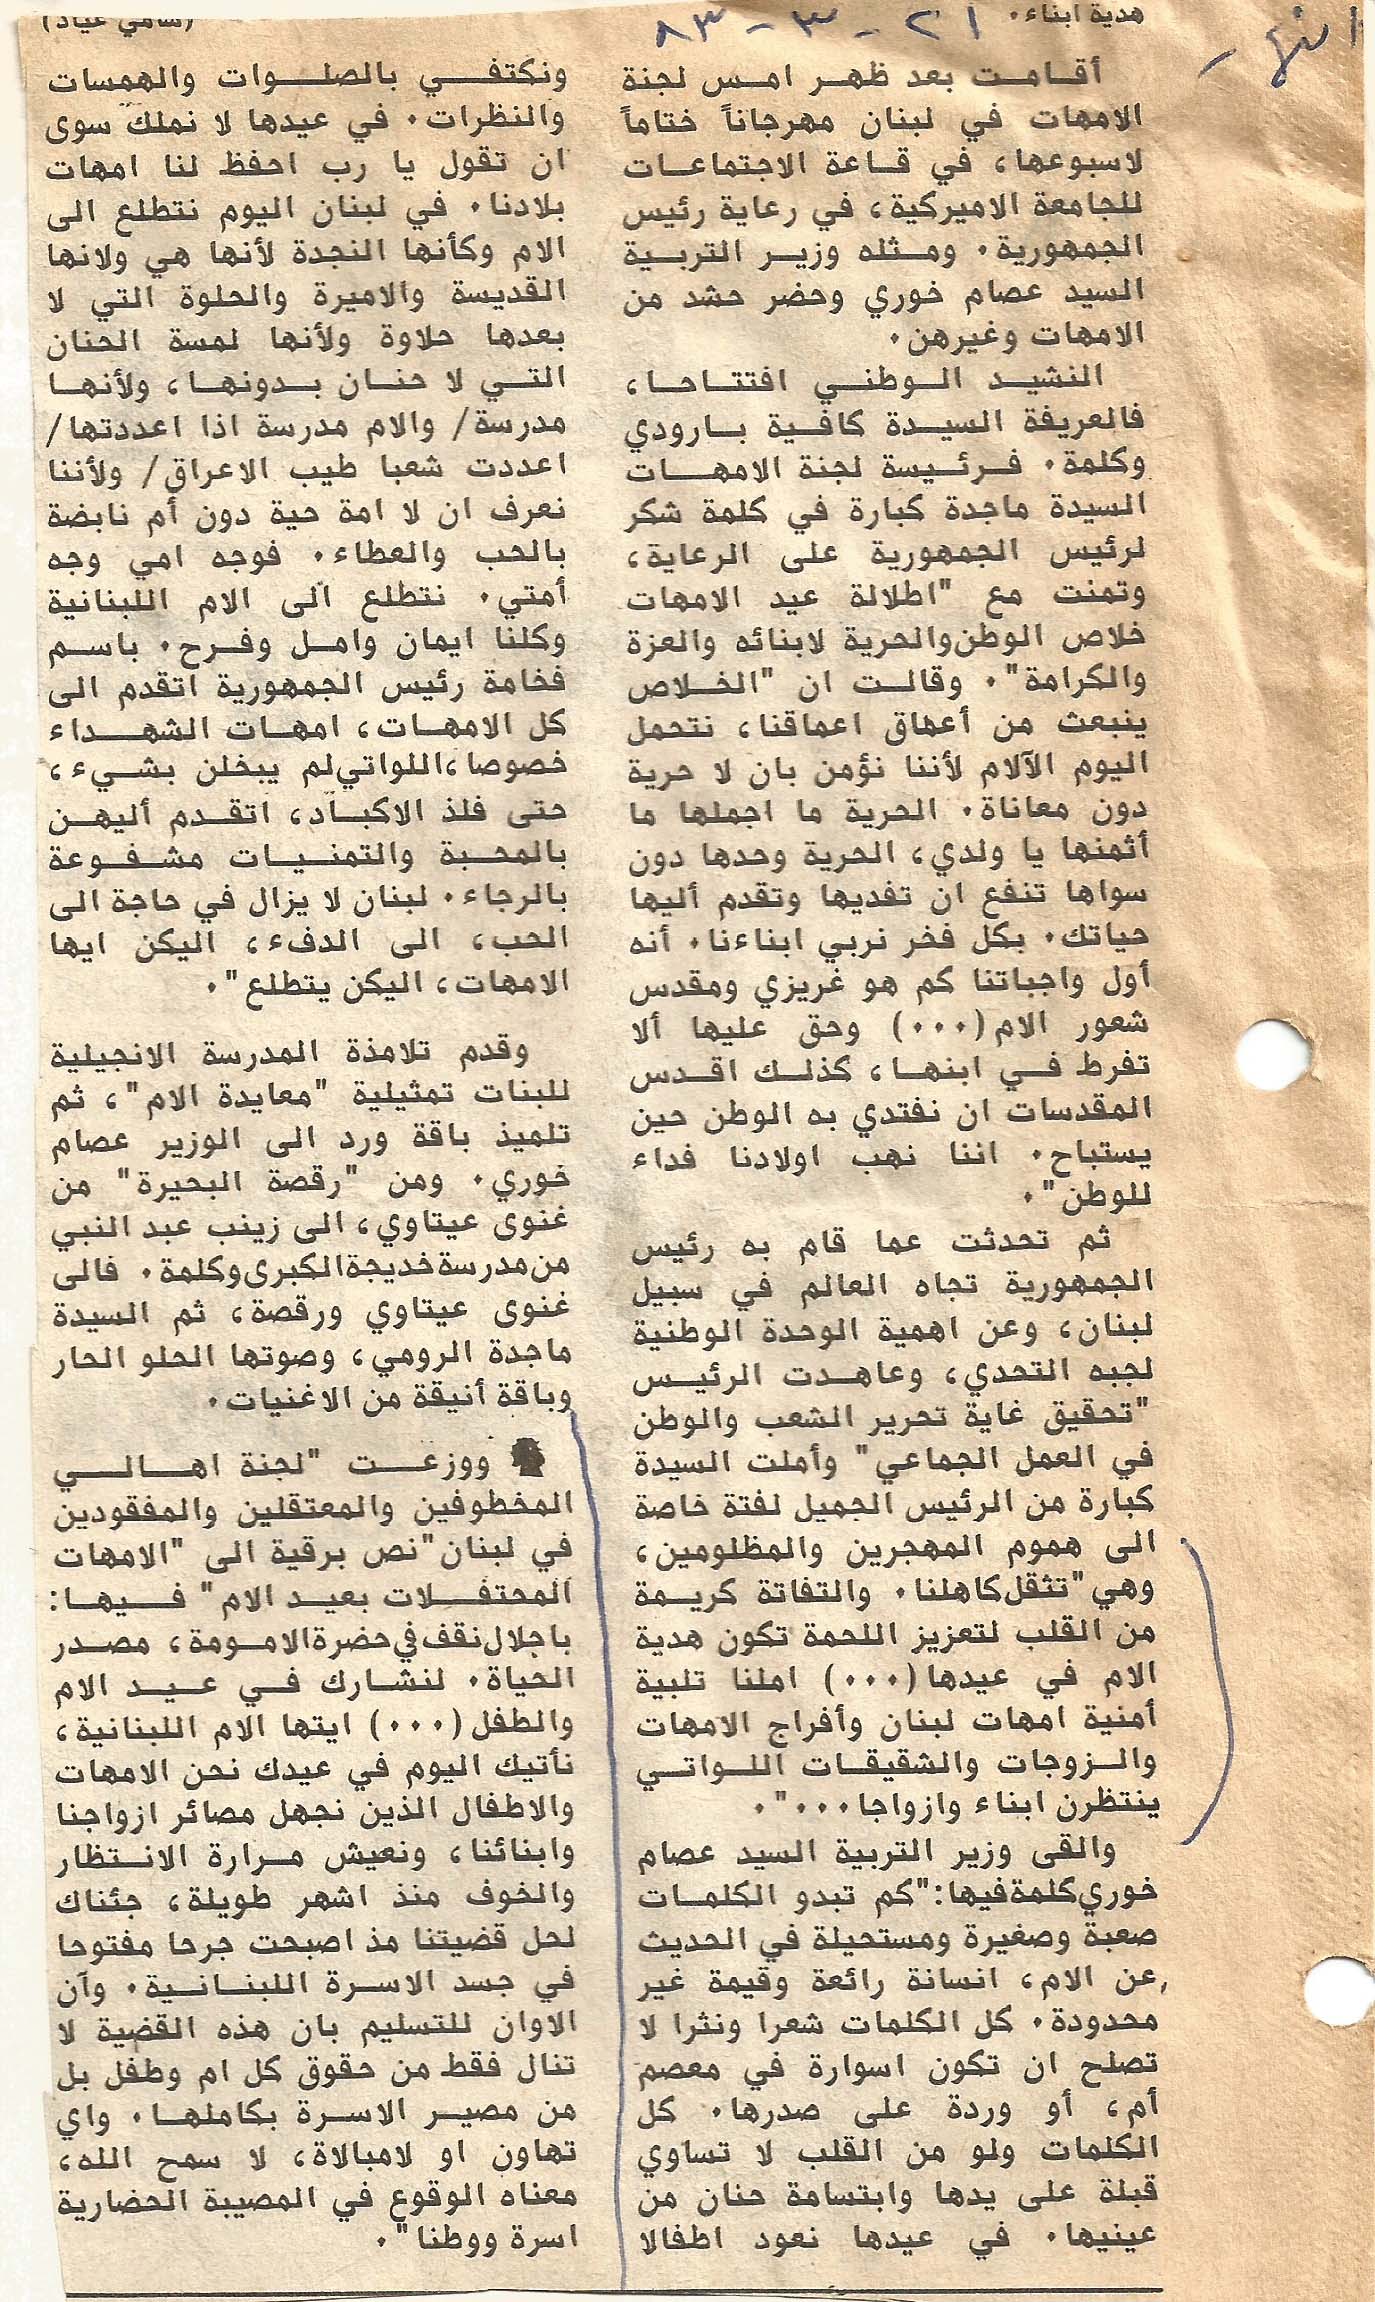 النهار - ٢١ - ٣ - ٨٣
هدية ابناء.
(سامي عياد)
أقامت بعد ظهر امس لجنة
الامهات في لبنان مهرجاناً ختاماً
لاسبوعها، في قاعة الاجتماعات
للجامعة الاميركية، في رعاية رئيس
الجمهورية. ومثله وزير التربية
السيد عصام خوري وحضر حشد من
الامهات وغيرهن.
النشيد الوطني افتتاحا،
فالعريفة السيدة كافية بارودي
وكلمة. فرئيسة لجنة الامهات
السيدة ماجدة كبارة في كلمة شكر
لرئيس الجمهورية على الرعاية،
وتمنت مع "اطلالة عيد الامهات
خلاص الوطن والحرية لابنائه والعزة
والكرامة". وقالت ان "الخلاص
ينبعث من أعماق اعماقنا، نتحمل
اليوم الآلام لأننا نؤمن بان لا حرية
دون معاناة. الحرية ما اجملها ما
أثمنها يا ولدي، الحرية وحدها دون
سواها تنفع ان تفديها وتقدم أليها
حياتك. بكل فخر نربي ابناءنا. أنه
أول واجباتنا كم هو غريزي ومقدس
شعور الام (...) وحق عليها ألا
تفرط في ابنها، كذلك اقدس
المقدسات ان نفتدي به الوطن حين
يستباح. اننا نهب اولادنا فداء
للوطن".
ثم تحدثت عما قام به رئيس
الجمهورية تجاه العالم في سبيل
لبنان، وعن اهمية الوحدة الوطنية
لجبه التحدي، وعاهدت الرئيس
"تحقيق غاية تحرير الشعب والوطن
في العمل الجماعي" وأملت السيدة
كبارة من الرئيس الجميل لفتة خاصة
الى هموم المهجرين والمظلومين،
وهي "تثقل كاهلنا. والتفاتة كريمة
من القلب لتعزيز اللحمة تكون هدية
الام في عيدها (...) املنا تلبية
أمنية امهات لبنان وأفراج الامهات
والزوجات والشقيقات اللواتي
ينتظرن ابناء وازواجا...".
والقى وزير التربية السيد عصام
خوري كلمة فيها: "كم تبدو الكلمات
صعبة وصغيرة ومستحيلة في الحديث
عن الام، انسانة رائعة وقيمة غير
محدودة. كل الكلمات شعرا ونثرا لا
تصلح ان تكون اسوارة في معصم
أم، أو وردة على صدرها. كل
الكلمات ولو من القلب لا تساوي
قبلة على يدها وابتسامة حنان من
عينيها. في عيدها نعود اطفالا
ونكتفي بالصلوات والهمسات
والنظرات. في عيدها لا نملك سوى
ان تقول يا رب احفظ لنا امهات
بلادنا. في لبنان اليوم نتطلع الى
الام وكأنها النجدة لأنها هي ولانها
القديسة والاميرة والحلوة التي لا
بعدها حلاوة ولأنها لمسة الحنان
التي لا حنان بدونها، ولأنها
مدرسة/ والام مدرسة اذا اعددتها/
اعددت شعبا طيب الاعراق/ ولأننا
نعرف ان لا امة حية دون أم نابضة
بالحب والعطاء. فوجه امي وجه
أمتي. نتطلع الى الام اللبنانية
وكلنا ايمان وامل وفرح. باسم
فخامة رئيس الجمهورية اتقدم الى
كل الامهات، امهات الشهداء
خصوصا، اللواتي لم يبخلن بشيء،
حتى فلذ الاكباد، اتقدم أليهن
بالمحبة والتمنيات مشفوعة
بالرجاء. لبنان لا يزال في حاجة الى
الحب، الى الدفء، اليكن ايها
الامهات، اليكن يتطلع".
وقدم تلامذة المدرسة الانجيلية
للبنات تمثيلية "معايدة الام"، ثم
تلميذ باقة ورد الى الوزير عصام
خوري. ومن "رقصة البحيرة" من
غنوى عيتاوي، الى زينب عبد النبي
من مدرسة خديجة الكبرى وكلمة. فالى
غنوى عيتاوي ورقصة، ثم السيدة
ماجدة الرومي، وصوتها الحلو الحار
وباقة أنيقة من الاغنيات.
ووزعت "لجنة اهالي
المخطوفين والمعتقلين والمفقودين
في لبنان" نص برقية الى "الامهات
المحتفلات بعيد الام" فيها:
باجلال نقف في حضرة الامومة، مصدر
الحياة. لنشارك في عيد الام
والطفل (...) ايتها الام اللبنانية،
نأتيك اليوم في عيدك نحن الامهات
والاطفال الذين نجهل مصائر ازواجنا
وابنائنا، ونعيش مرارة الانتظار
والخوف منذ اشهر طويلة، جئناك
لحل قضيتنا مذ اصبحت جرحا مفتوحا
في جسد الاسرة اللبنانية. وآن
الاوان للتسليم بان هذه القضية لا
تنال فقط من حقوق كل ام وطفل بل
من مصير الاسرة بكاملها. واي
تهاون او لامبالاة، لا سمح الله،
معناه الوقوع في المصيبة الحضارية
اسرة ووطنا".